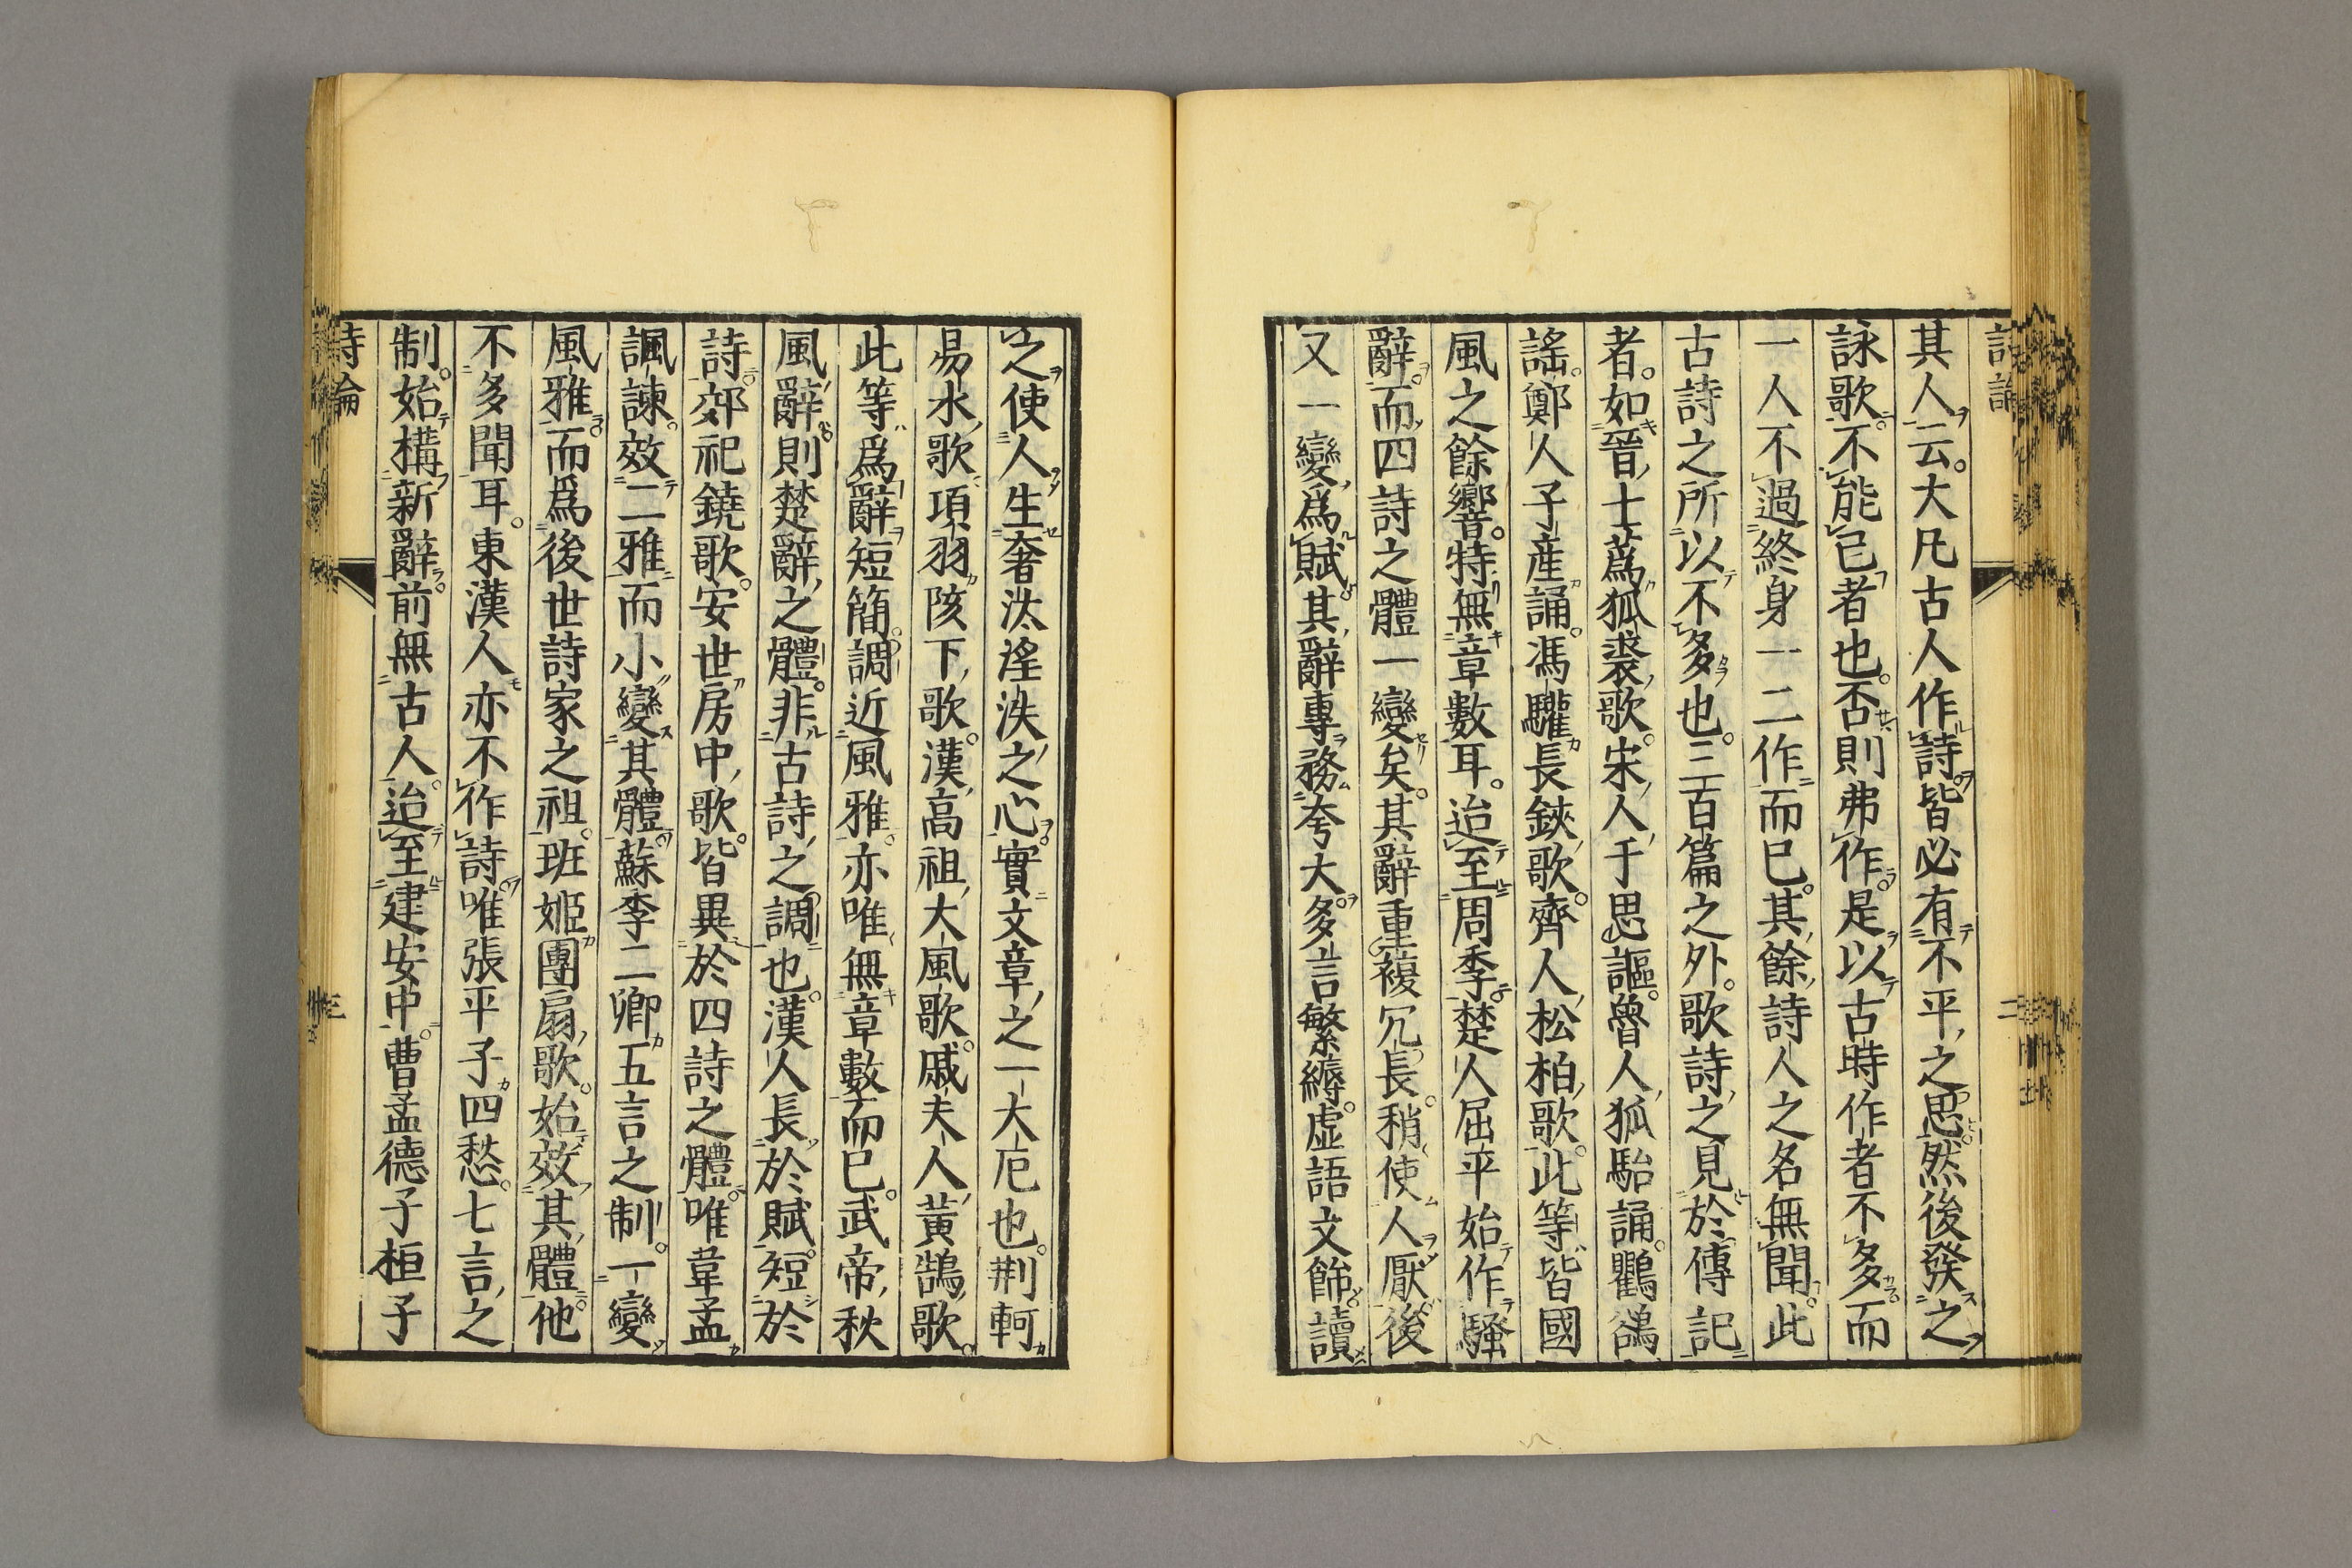 其人云。大凡古人作詩。皆必有不平之思。然後發之
詠歌。不能已者也。否則弗作。是以古時作者不多。而
一人不過終身一二作而已。其餘詩人之名無聞。此
古詩之所以不多也。三百篇之外。歌詩之見於傳記
者。如晉士蔿狐裘歌。宋人于思謳。魯人狐駘誦。鸜鵒
謠。鄭人子產誦。馮驩長鋏歌。齊人松柏歌。此等皆國
風之餘響。特無章數耳。迨至周季。楚人屈平始作騷
辭。而四詩之體一變矣。其辭重複冗長。稍使人厭。後
又一變爲賦。其辭專務夸大。多言繁縟。虛語文飾。讀
之使人生奢汰淫泆之心。實文章之一大厄也。荆軻
易水歌。項羽陔下歌。漢高祖大風歌。戚夫人黃鵠歌。
此等爲辭短簡。調近風雅。亦唯無章數而已。武帝秋
風辭。則楚辭之體。非古詩之調也。漢人長於賦。短於
詩。郊祀鐃歌。安世房中歌。皆異於四詩之體。唯韋孟
諷諫。效二雅而小變其體。蘇李二卿五言之制。一變
風雅。而爲後世詩家之祖。班姬團扇歌。始效其體。他
不多聞耳。東漢人亦不作詩。唯張平子四愁。七言之
制。始構新辭。前無古人。迨至建安中。曹孟德子桓子
詩論
三